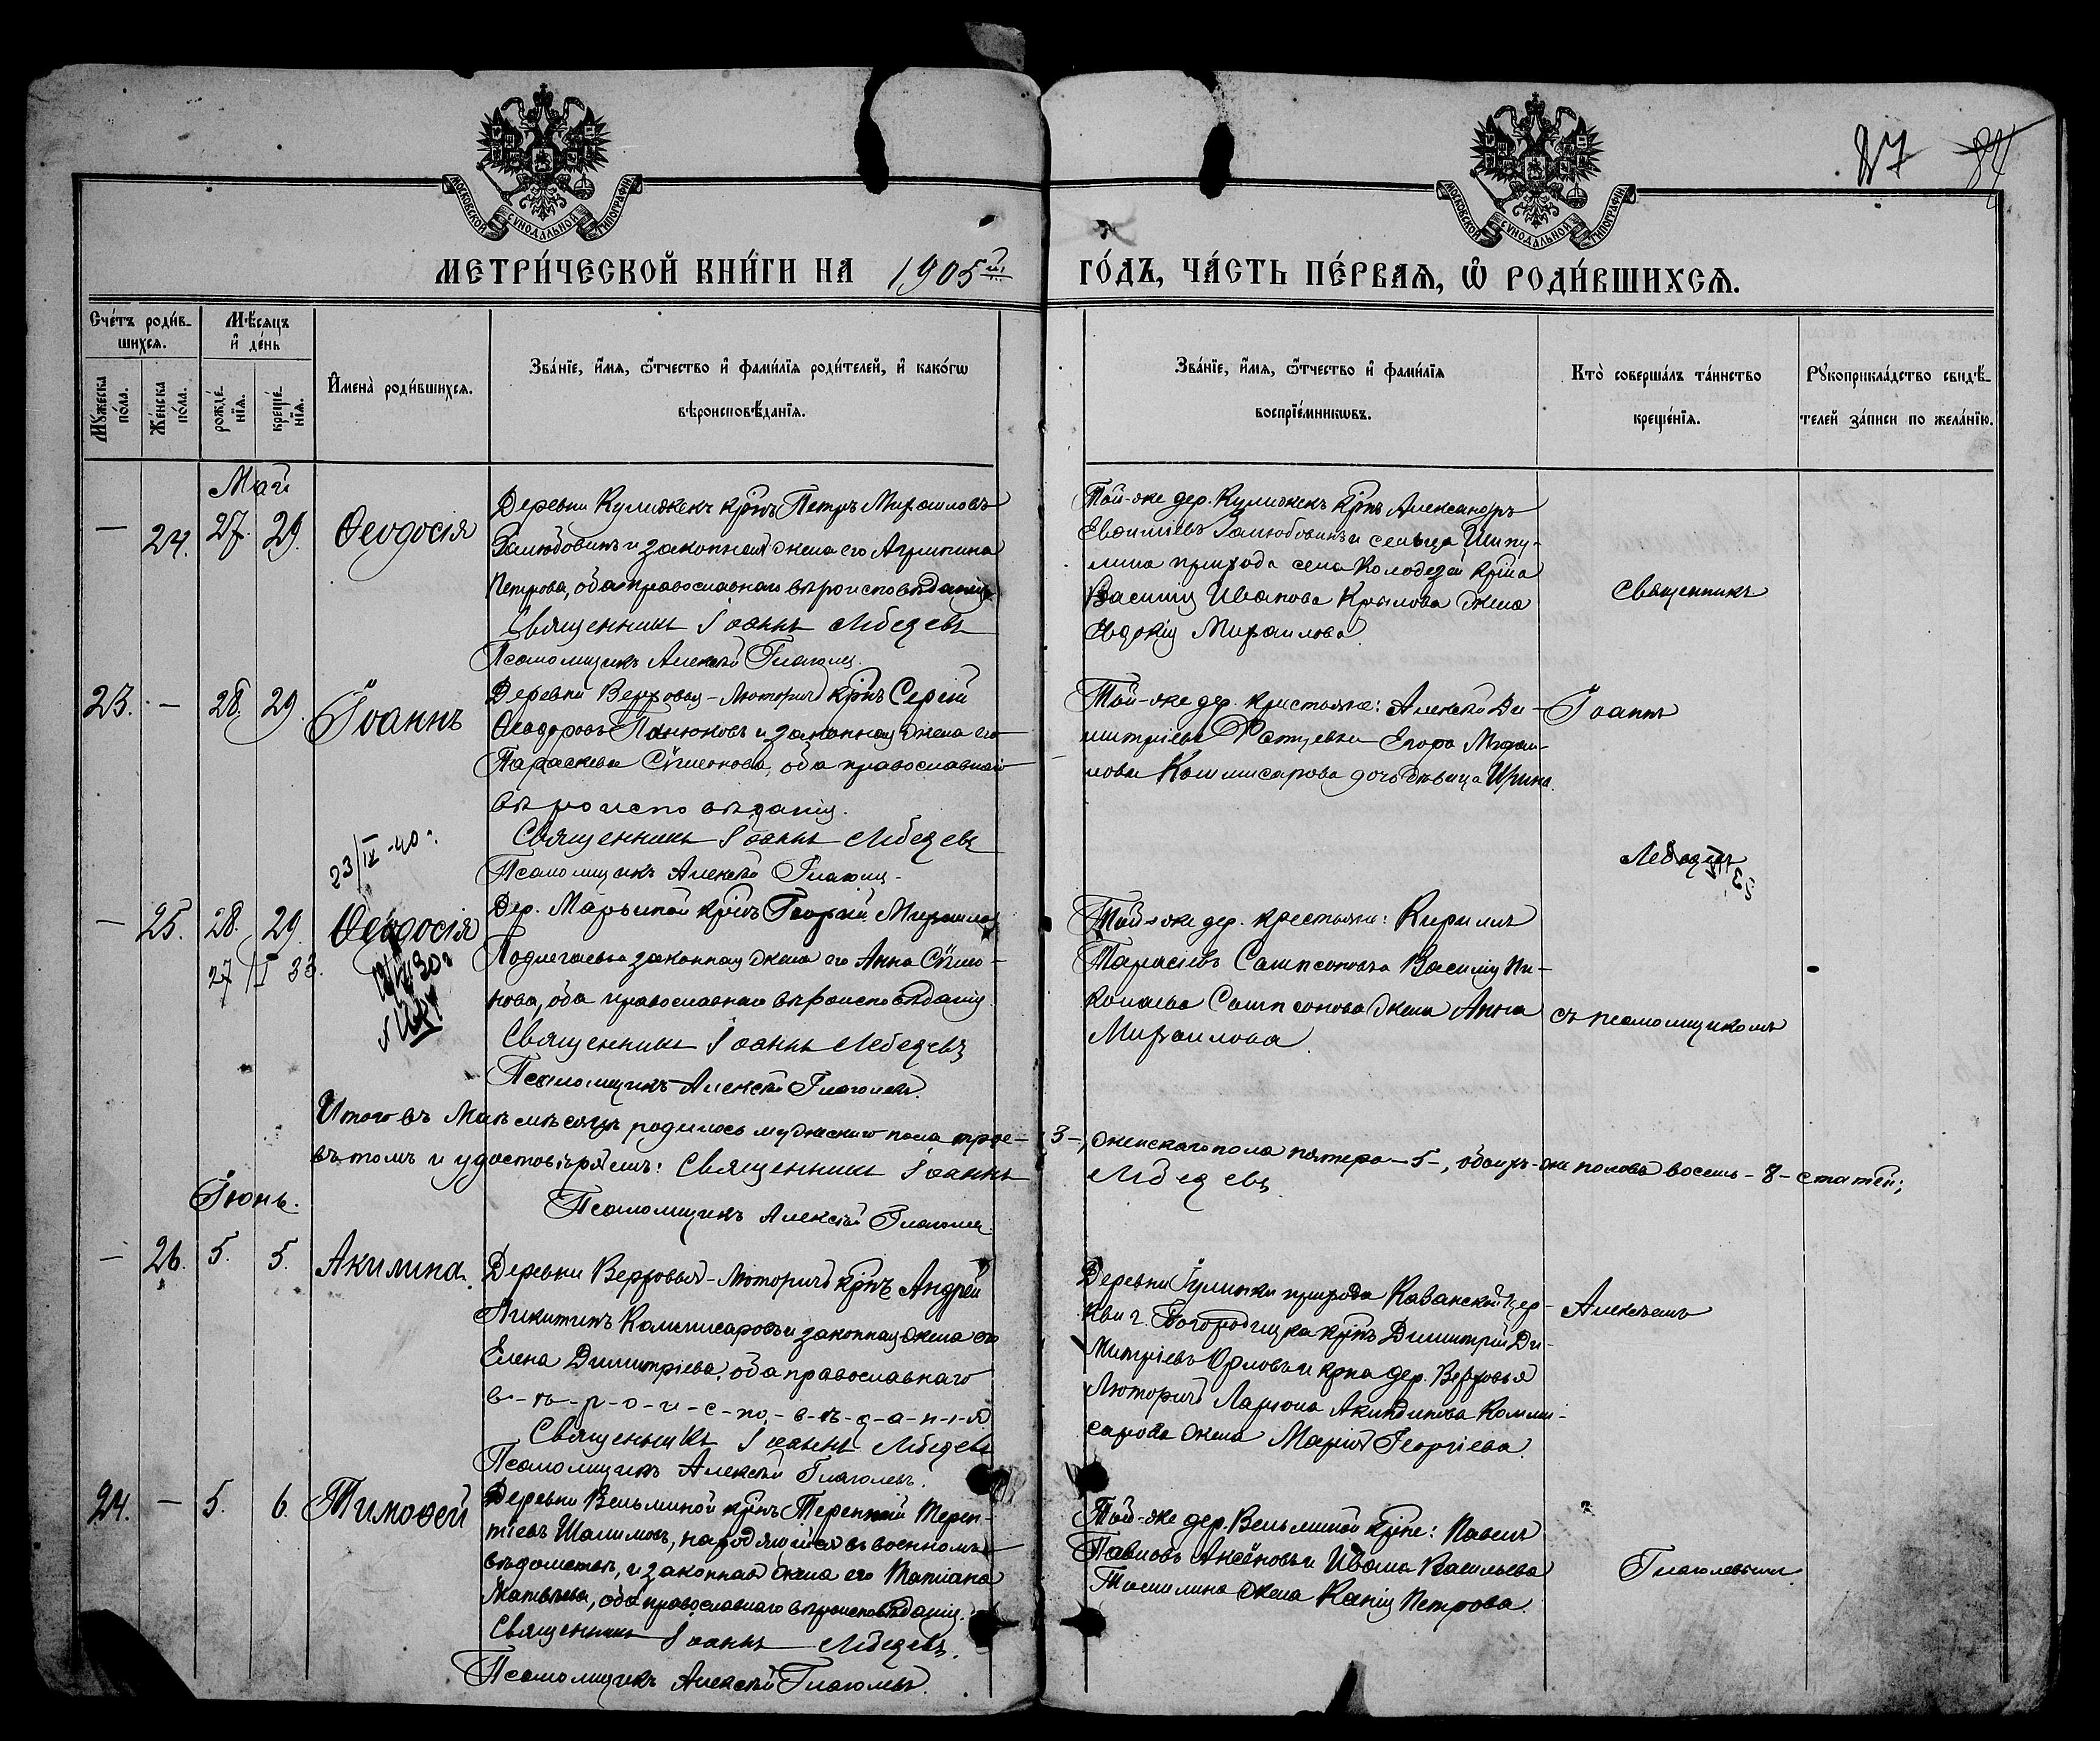 МОСКОВСКОЙ СУНОДАЛЬНОЙ ТИПОГРАФІИ
МОСКОВСКОЙ СУНОДАЛЬНОЙ ТИПОГРАФІИ
27 84
МЕТРИ́ЧЕСКОЙ КНИ́ГИ НА 1905й
ГО́ДЪ, ЧА́СТЬ ПЕ́РВАѦ, Ѡ҆ РОДИ́ВШИХСѦ.
Сче́тъ роди́в-
шихсѧ.
Мꙋ́жеска по́ла.
Же́нска по́ла.
Мѣ́сѧцъ и҆ де́нь
рожде́-
нїѧ.
креще́-
нїѧ.
И҆мена̀ роди́вшихсѧ.
Зва́нїе, и҆́мѧ, ѻ҆́тчество и҆ фами́лїѧ роди́телей, и҆ како́гѡ
вѣроисповѣ́данїѧ.
Зва́нїе, и҆́мѧ, ѻ҆́тчество и҆ фами́лїѧ
воспрїе́мникѡвъ.
Кто̀ соверша́лъ та́инство
креще́нїѧ.
Рꙋкоприкла́дство свидѣ́-
телей за́писи по жела́нїю.
Май
— 24. 27. 29. Ѳеодосія
Деревни Кулижекъ крнъ Петръ Михаиловъ
Залюбовинъ и законная жена его Агрипина
Петрова, оба православнаго вѣроисповѣданія
Священникъ Іоаннъ Лебедевъ
Псаломщикъ Алексѣй Глаголев
Той-же дер. Кулижекъ крнъ Александръ
Евѳиміевъ Залюбовинъ и сельца Шипу-
лина прихода села Колодезей крна
Василія Иванова Крылова жена
Евдокія Михаилова.
Священникъ
23. — 28. 29. Іоаннъ
Деревни Верховья-Люторичъ крнъ Сергій
Ѳеодоровъ Панюковъ и законная жена его
Параскева Сѵмеонова, оба православнаго
вѣроисповѣданія.
Священникъ Іоаннъ Лебедевъ
Псаломщикъ Алексѣй Глаголев
Той-же дер. крестьяне: Алексѣй Ди-
митріевъ и Егора Михаи-
лова Коммисарова дочь дѣвица Ирина.
Іоаннъ
23/IX-40г.
Лебедевъ
— 25. 28. 29. Ѳеодосія
27/I 33.
Дер. Марьиной крнъ Георгій Михаилов
Подчегаевъ и законная жена его Анна Сѵмео-
нова, оба православнаго вѣроисповѣданія.
Священникъ Іоаннъ Лебедевъ
Псаломщикъ Алексѣй Глаголевъ.
Той-же дер. крестьяне: Кириллъ
Тарасіевъ Сампсоновъ и Василія Ни-
колаева Сампсонова жена Анна
Михаилова.
съ псаломщикомъ
Итого въ Маѣ мѣсяцѣ родилось мужескаго пола трое — 3 —, женскаго пола пятеро — 5 —, обоихъ-же половъ восемь — 8 — статей;
въ томъ и удостовѣряемъ: Священникъ Іоаннъ Лебедевъ.
Псаломщикъ Алексѣй Глаголев
Іюнь.
— 26. 5. 5. Акилина.
Деревни Верховья-Люторичъ крнъ Андрей
Никитинъ Коммисаровъ и законная жена его
Елена Димитріева, оба православнаго
в-ѣ-р-о-и-с-по-в-ѣ-д-а-н-і-я
Священникъ Іоаннъ Лебедевъ
Псаломщикъ Алексѣй Глаголевъ.
Деревни прихода Казанской цер-
кви г. Богородицка крнъ Димитрій Ди-
митріевъ Орловъ и крна дер. Верховья
Люторичъ Ларіона Акиндинова Комми-
сарова жена Марія Георгіева.
Алексѣемъ
24. — 5. 6. Тимоѳей
Деревни Вельминой крнъ Терентій Терен-
тіевъ Шалимовъ, находящійся въ военномъ
вѣдомствѣ, и законная жена его Татіана
Матвѣева, оба православнаго вѣроисповѣданія.
Священникъ Іоаннъ Лебедевъ.
Псаломщикъ Алексѣй Глаголевъ.
Той-же дер. Вельминой крне: Павелъ
Павловъ Аксеновъ и Ивана Васильева
Тамилина жена Ксенія Петрова.
Глаголевымъ.